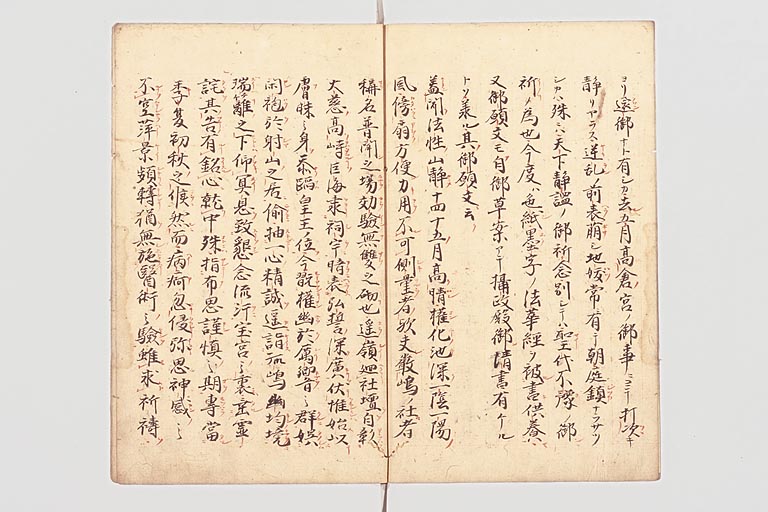 ヨリ還御ナト有シカ去五月高倉宮ノ御事ニヨリ打次キ
静リヤラス逆乱ノ前表崩シ地妖常有テ朝庭鎮ナラサツ
シカハ殊ニハ天下静謐ノ御祈念別シテハ聖代不豫ノ御
祈ノ為也今度ハ色紙墨字ノ法華経ヲ被書供養ス
又御願文モ自御草案アリテ摂政殿御清書有ケル
トソ承ル其御願文云
蓋聞法性山静十四十五月高晴権化池深一陰一陽
風傍扇方便力用不可側量者歟夫厳嶋ノ社者
稱名普聞之場効験無雙之砌也遥嶺廻社壇自彰
大慈高峙巨海表祠宇暗表弘誓深廣伏惟始以
庸昧之身忝臨皇王ノ位今翫権幽於厲郷普之群娯
閑褐於射山之居偷抽一心精誠遥詣孤嶋幽均境
瑞籬之下仰冥恩致懇念流汗宝宮之裏垂霊
詫其告有銘心就中殊指布思謹慎之期専當
季夏初秋之候然而病痾忽侵弥思神感之
不空萍景頻轉猶無施醫術之驗雖求祈祷